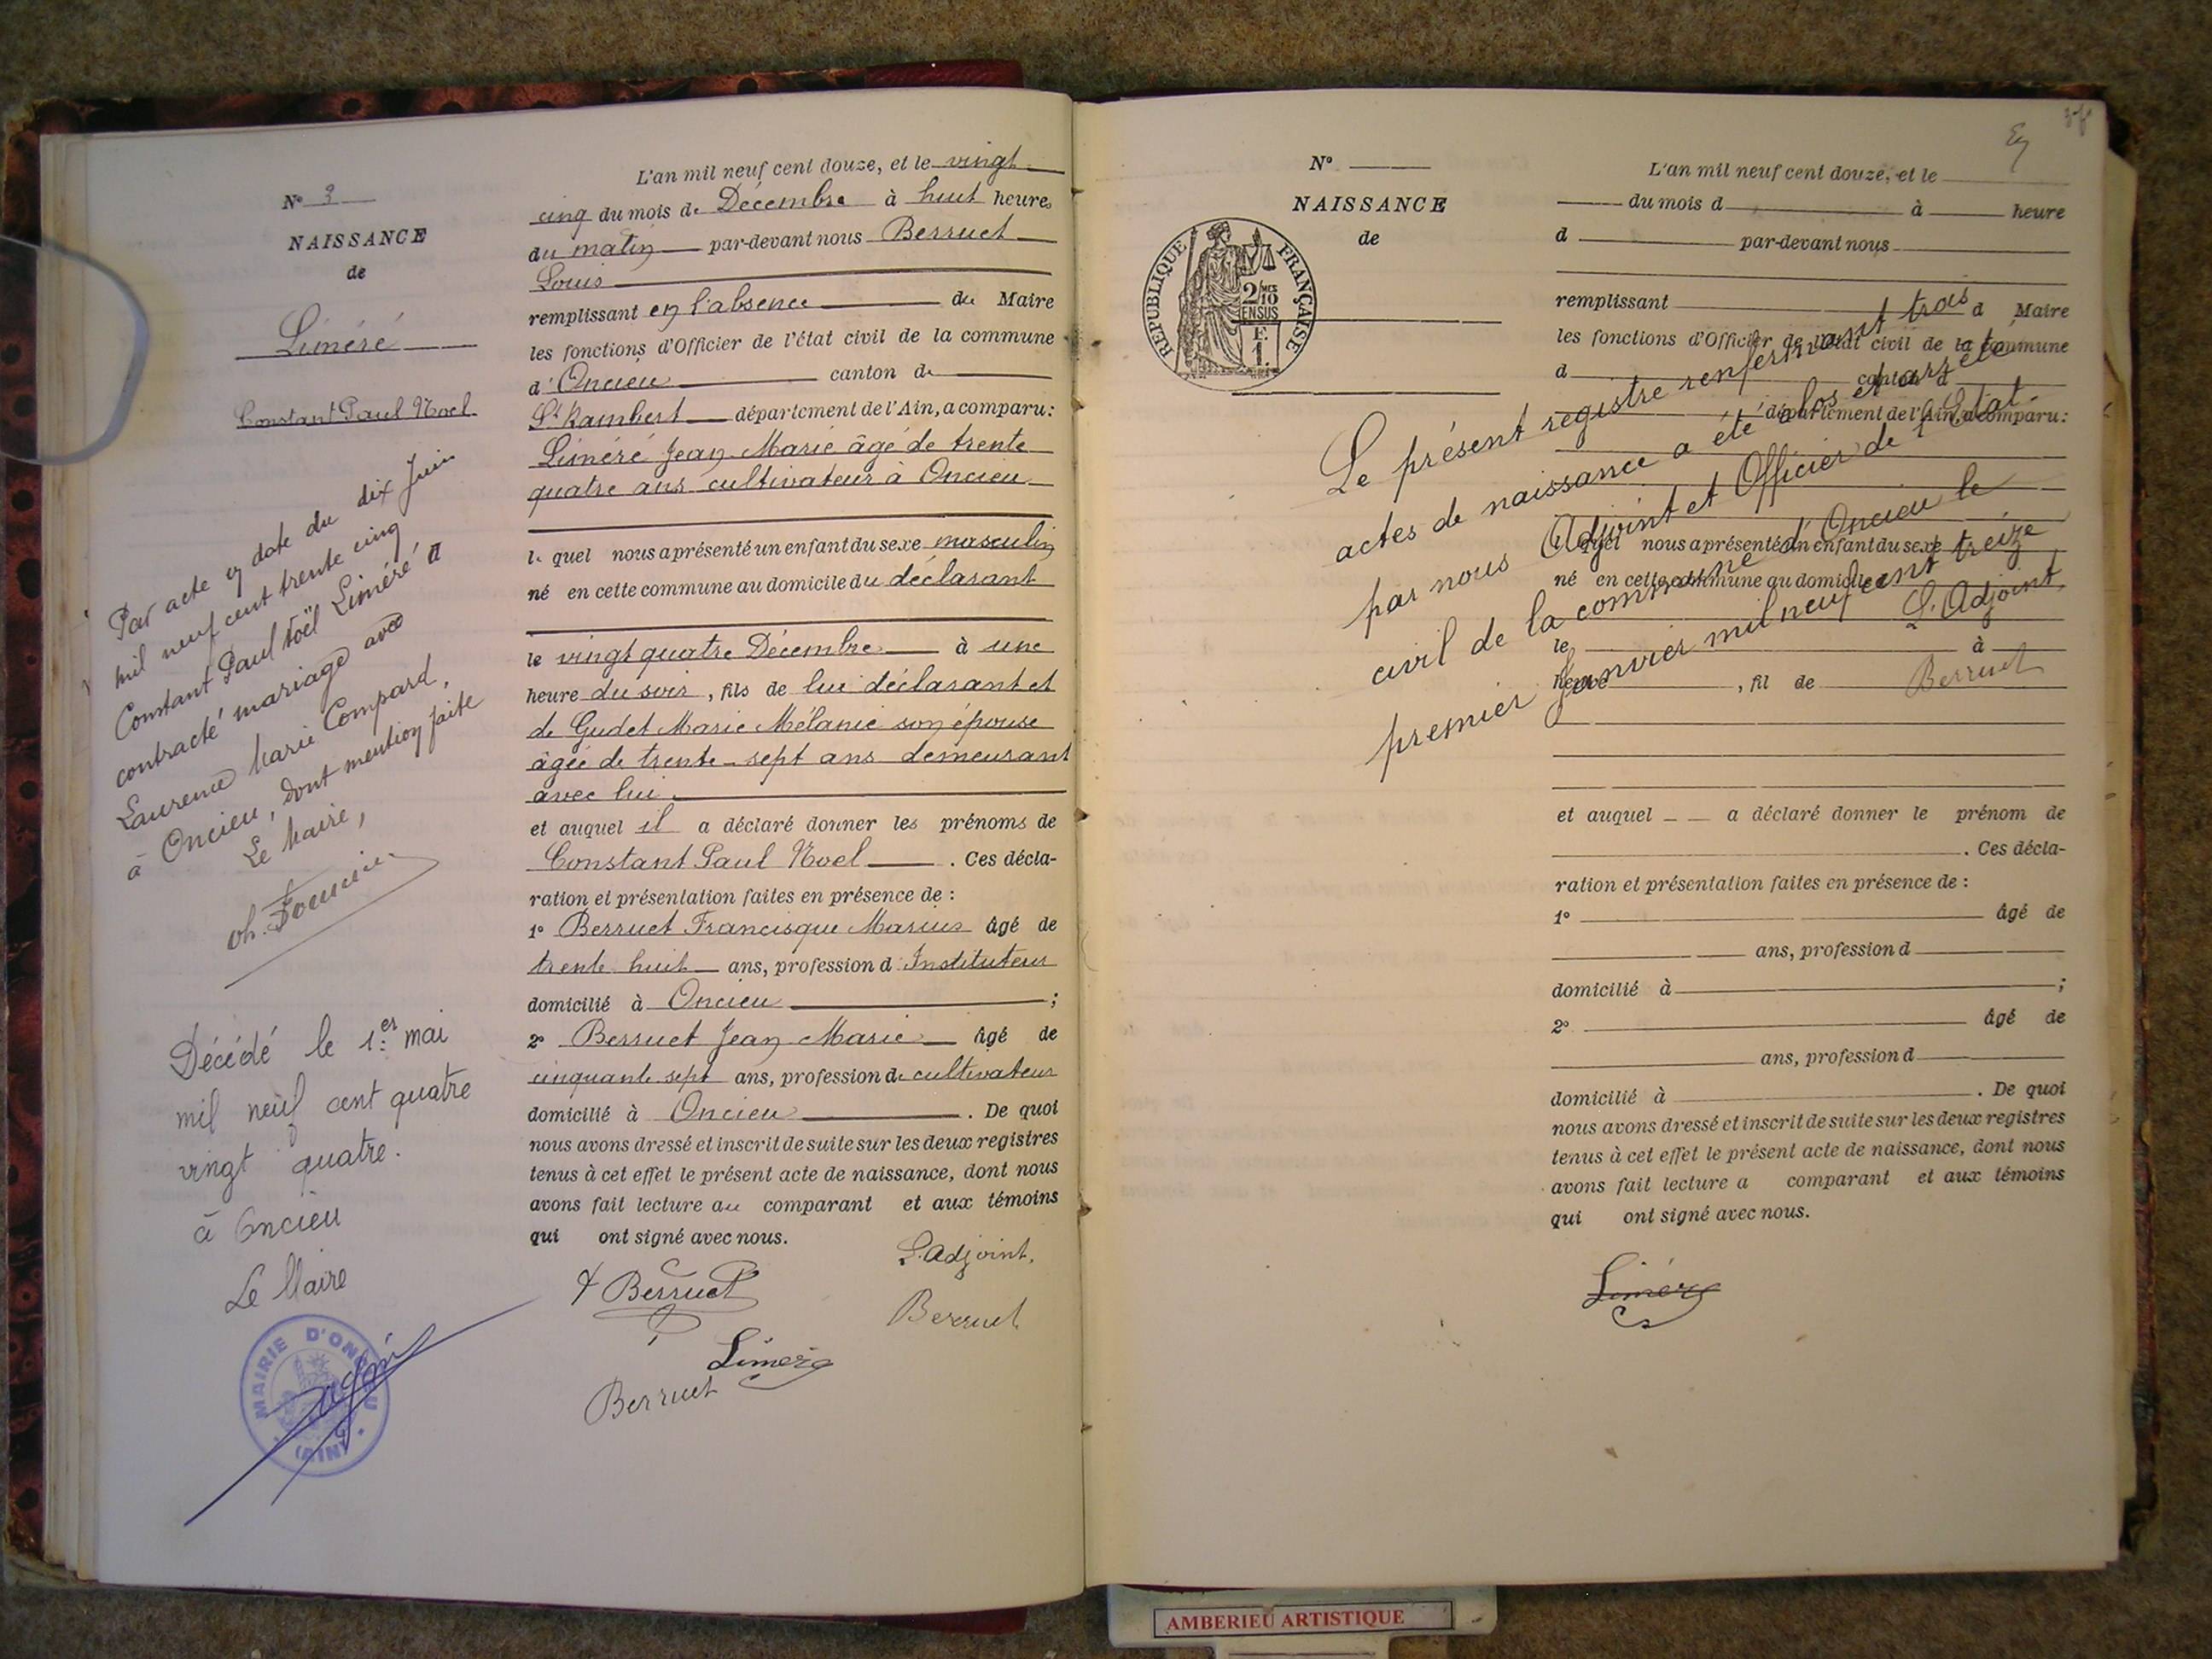 N° 3
NAISSANCE
de
Liméré
Constant Paul Noel
Par acte en date du dix Juin
mil neuf cent trente cinq
Constant Paul Noël Liméré a
contracté mariage avec
Laurence Marie Compard,
à Oncieu, dont mention faite
Le Maire,
Décédé le 1er mai
mil neuf cent quatre
vingt quatre.
à Oncieu
Le Maire
MAIRIE D'ONCIEU
(AIN)
L'an mil neuf cent douze, et le vingt
cinq du mois de Décembre à huit heures
du matin par-devant nous Berruet
Louis
remplissant en l'absence du Maire
les fonctions d'Officier de l'état civil de la commune
d'Oncieu canton de
St Rambert département de l'Ain, a comparu:
Liméré Jean Marie âgé de trente
quatre ans cultivateur à Oncieu
lequel nous a présenté un enfant du sexe masculin
né en cette commune au domicile du déclarant
le vingt quatre Décembre à une
heure du soir, fils de lui déclarant et
de Gudet Marie Mélanie son épouse
âgée de trente-sept ans demeurant
avec lui.
et auquel il a déclaré donner les prénoms de
Constant Paul Noel. Ces décla-
ration et présentation faites en présence de :
1° Berruet Francisque Marius âgé de
trente huit ans, profession d'Instituteur
domicilié à Oncieu ;
2° Berruet Jean Marie âgé de
cinquante sept ans, profession de cultivateur
domicilié à Oncieu. De quoi
nous avons dressé et inscrit de suite sur les deux registres
tenus à cet effet le présent acte de naissance, dont nous
avons fait lecture au comparant et aux témoins
qui ont signé avec nous.
L'adjoint,
Berruet
Berruet
Liméré
Berruet
N°
NAISSANCE
de
REPUBLIQUE FRANÇAISE
2/10
MES
EN SUS
F.
1.
L'an mil neuf cent douze, et le
du mois d à heure
d par-devant nous
remplissant d Maire
les fonctions d'Officier de l'état civil de la commune
d canton d
département de l'Ain, a comparu:
lequel nous a présenté un enfant du sexe
né en cette commune au domicile d
le à
heure , fil de
et auquel a déclaré donner le prénom de
. Ces décla-
ration et présentation faites en présence de :
1° âgé de
ans, profession d
domicilié à ;
2° âgé de
ans, profession d
domicilié à . De quoi
nous avons dressé et inscrit de suite sur les deux registres
tenus à cet effet le présent acte de naissance, dont nous
avons fait lecture a comparant et aux témoins
qui ont signé avec nous.
Liméré
Le présent registre renfermant trois
actes de naissance a été clos et arrêté
par nous Adjoint et Officier de l'Etat
civil de la commune d'Oncieu le
premier Janvier mil neuf cent treize
L'Adjoint,
Berruet
AMBERIEU ARTISTIQUE